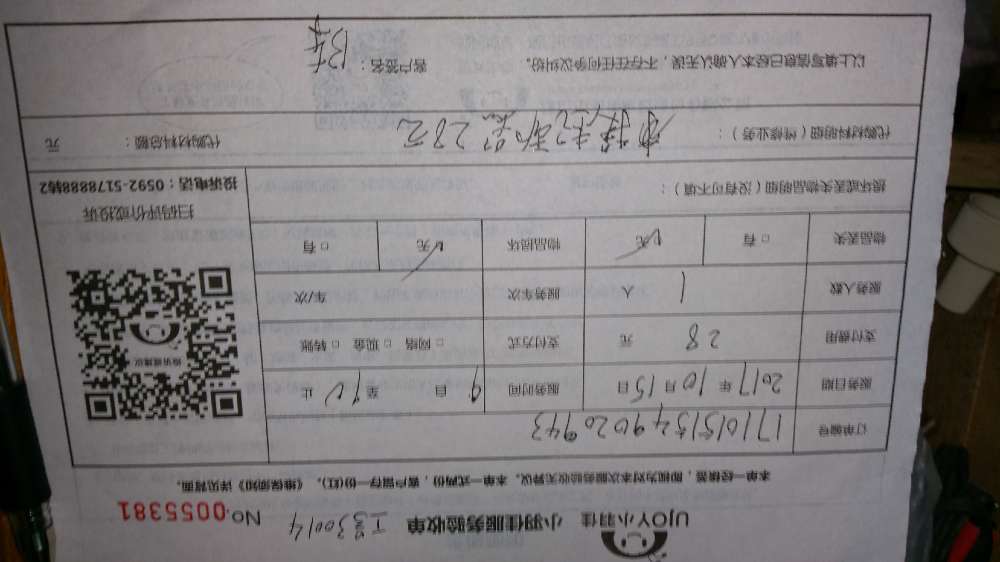 UJOY小羽佳 小羽佳服务验收单 工号30014 No.0055381
本单一经填签,即视为对本次服务验收无异议。本单一式两份,客户留存一份(红)。《维保须知》详见背面。
订单编号 1710151549020943
服务日期 2017年10月15日 服务时间 9自 至 止
支付费用 28元 支付方式 □网络 □现金 □转账
服务人数 1人 服务车次 车/次
物品丢失 □有 ☑无 物品损坏 □有 ☑无
投诉或建议
扫码评价或投诉
投诉电话:0592-5178888转2
损坏或丢失物品明细(没有可不填):
代购材料明细(维修业务): 28元 代购材料总额: 元
以上填写信息已经本人确认无误,不存在任何争议纠纷。 客户签名: